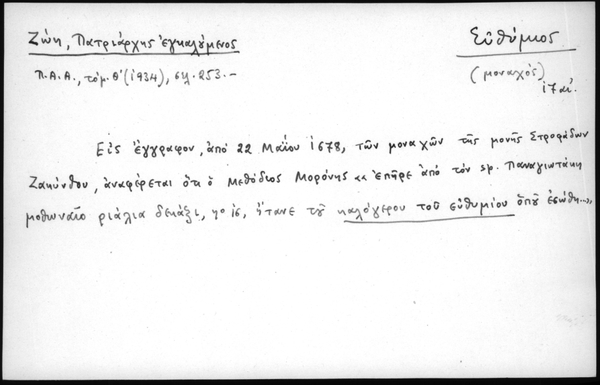 Ζώη, Πατριάρχης ἐγκαλούμενος
Εὐθύμιος
Π.Α.Α., τόμ. Θ' (1934), σελ. 253.-
(μοναχός)
17 αἰ.
Εἰς ἔγγραφον, ἀπό 22 Μαΐου 1678, τῶν μοναχῶν τῆς μονῆς Στροφάδων
Ζακύνθου, ἀναφέρεται ὅτι ὁ Μεθόδιος Μορόνης << ἐπῆρε ἀπό τόν σρ. Παναγιωτάκη
μοθωναῖο ριάλια δεκάξι, 16, ἤτανε τοῦ καλόγερου τοῦ εὐθυμίου ὁποῦ ἐσώθη...>>